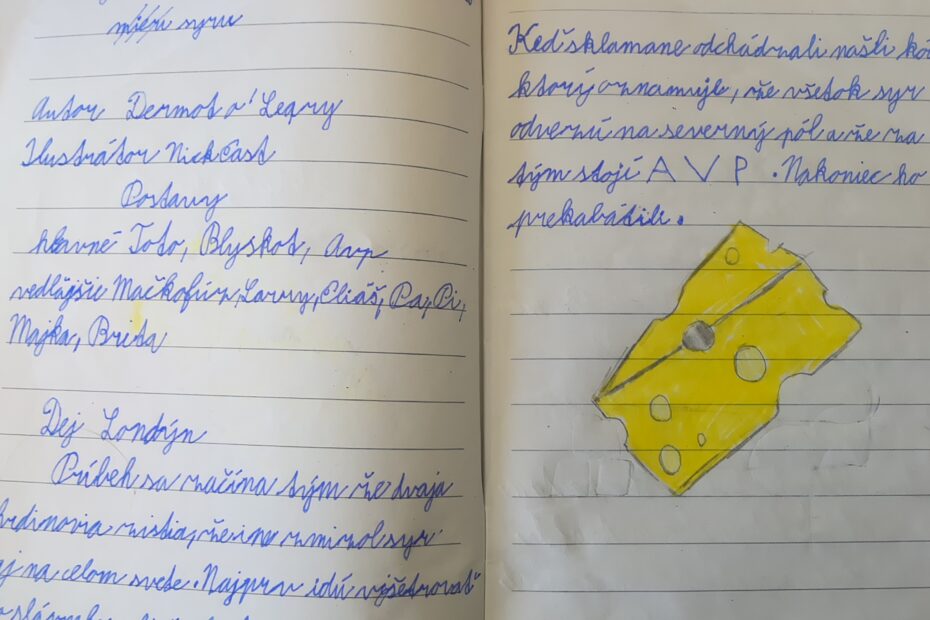 syru
Autor Dermot o' Leary
Ilustrátor Nick East
Postavy
hlavné Toto, Blyskot, Avp
vedľajšie Mačkofúz, Larry, Eliáš, Pa, Pi,
Majka, Breta
Dej Londýn
Príbeh sa začína tým že dvaja
hrdinovia zistia, že im zmizol syr
aj na celom svete. Najprv idú vyšetrovať
Keď sklamane odchádzali našli
ktorý oznamuje, že všetok syr
odvezú na severný pól a že za
tým stojí A V P. Nakoniec ho
prekabátili.